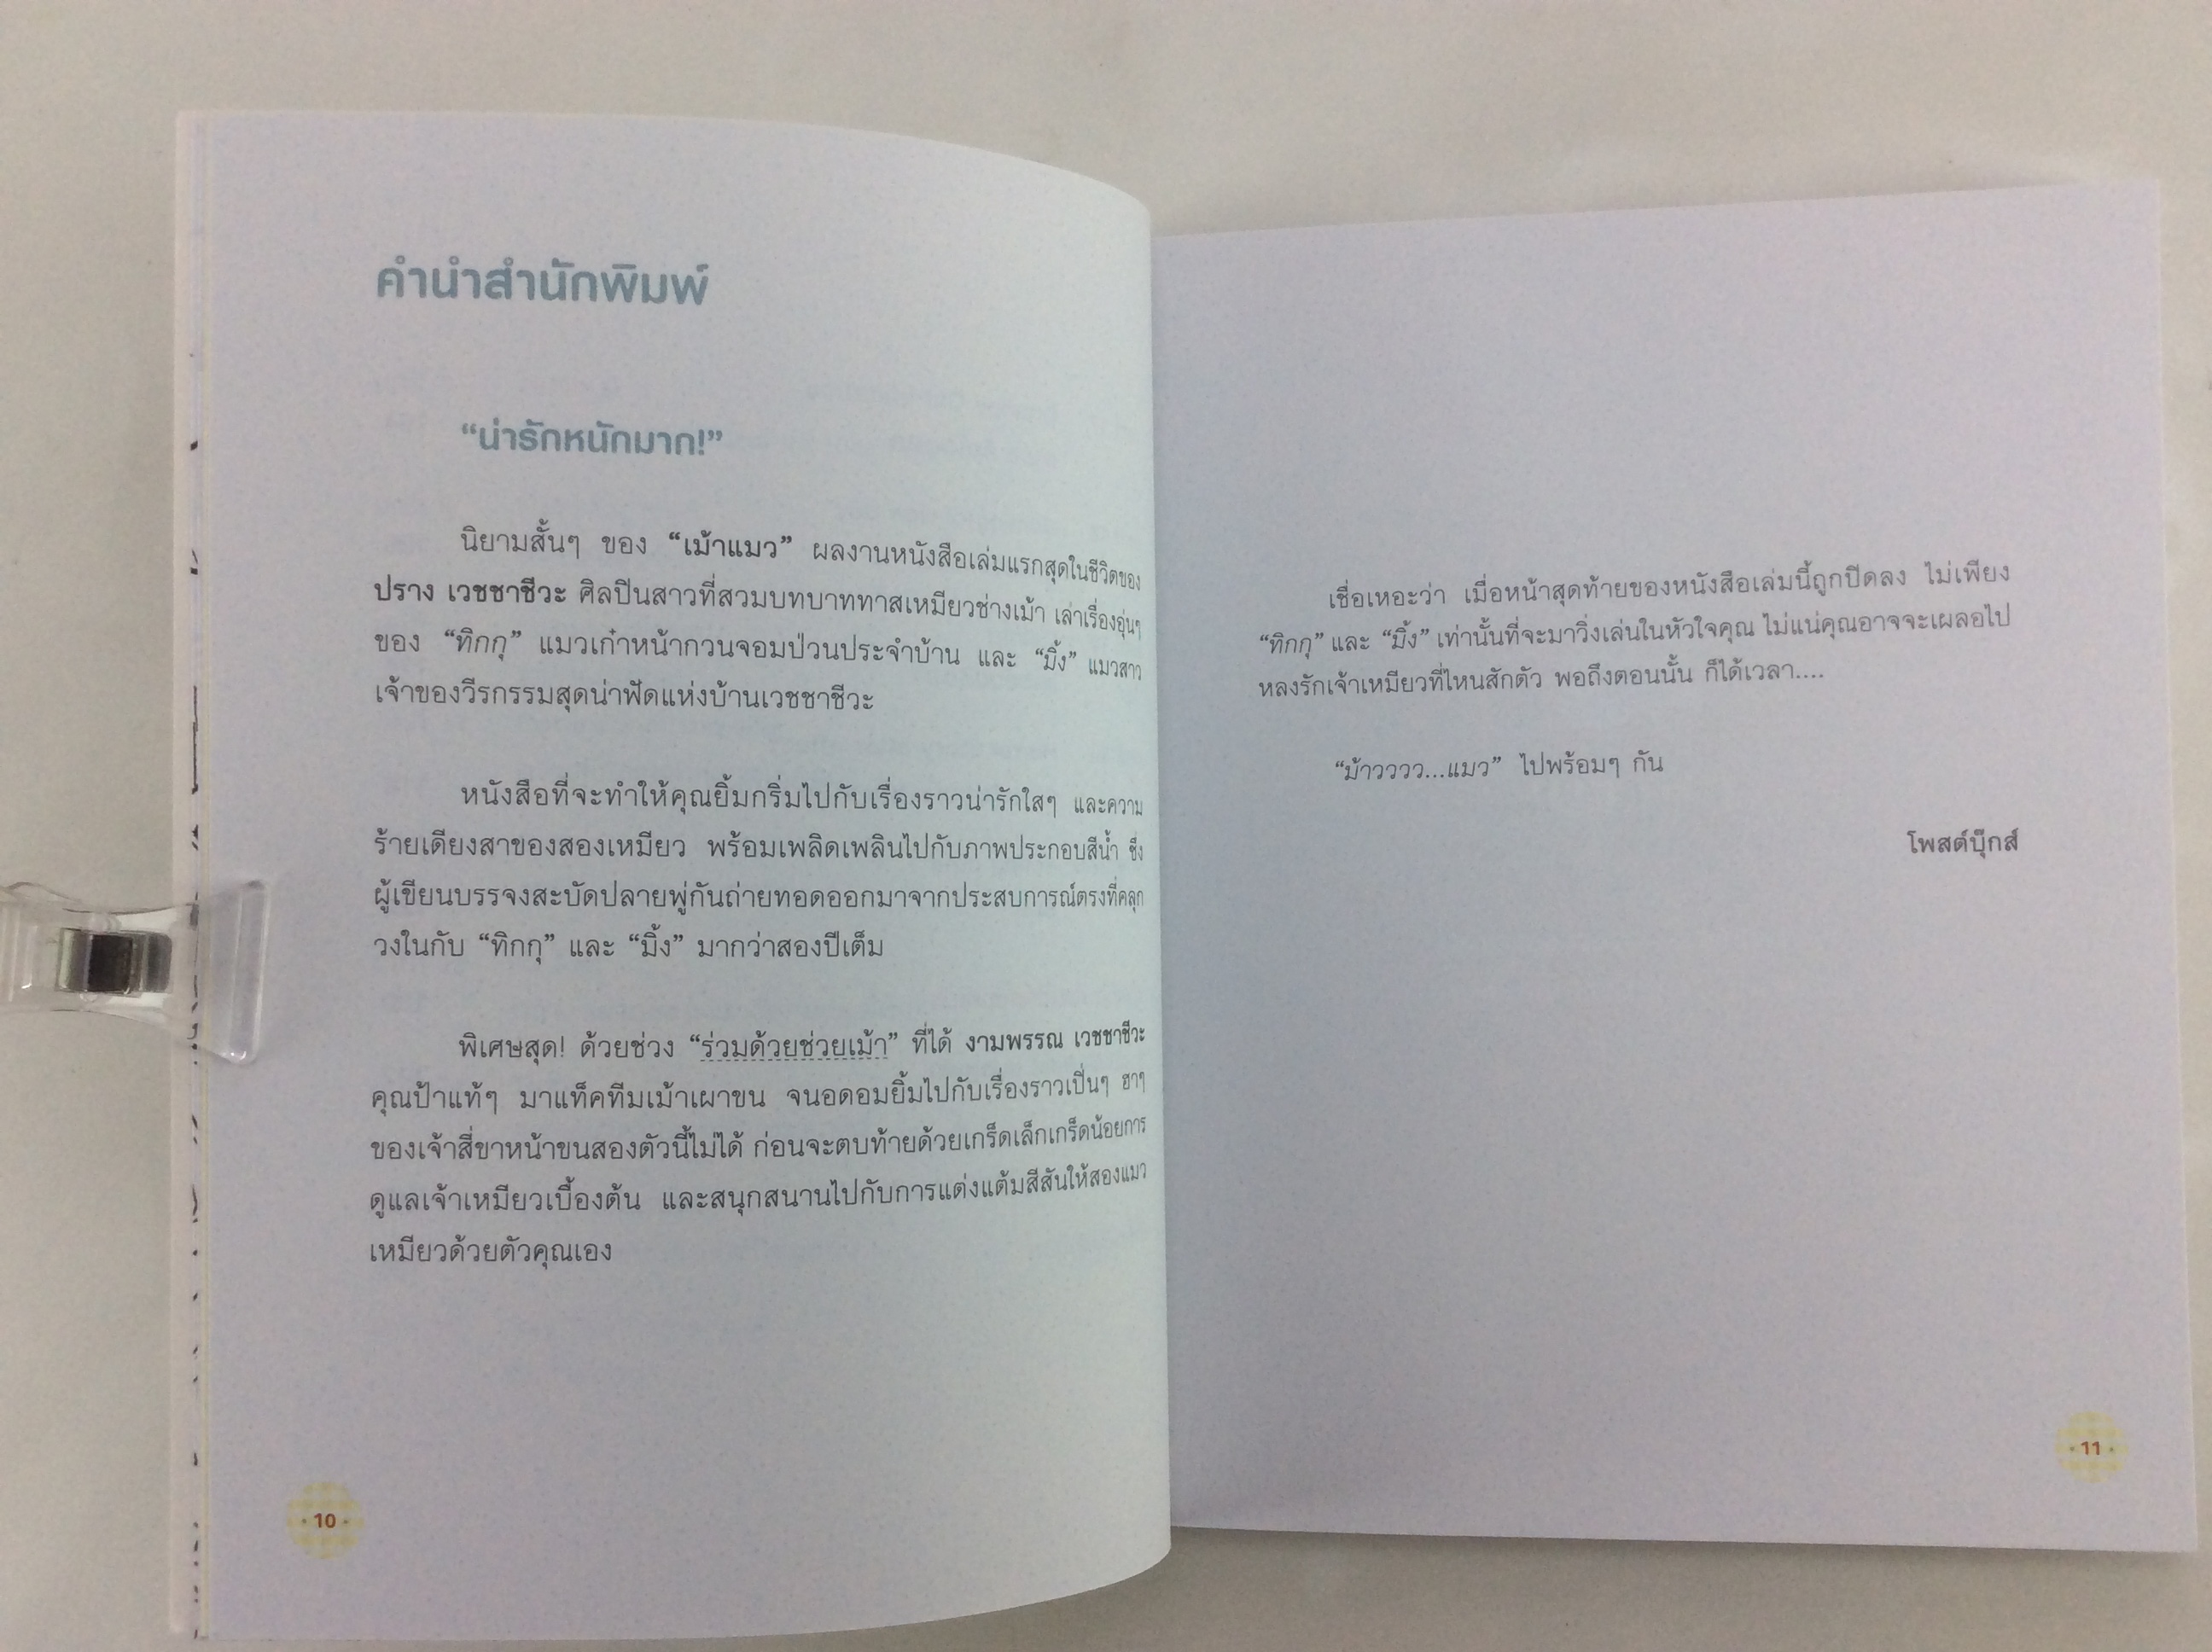 คำนำสำนักพิมพ์
“น่ารักหนักมาก!”
นิยามสั้นๆ ของ “เม้าแมว” ผลงานหนังสือเล่มแรกสุดในชีวิตของ
ปราง เวชชาชีวะ ศิลปินสาวที่สวมบทบาททาสเหมียวช่างเม้า เล่าเรื่องอุ่นๆ
ของ “ทิกกุ” แมวเก๋าหน้ากวนจอมป่วนประจำบ้าน และ “มิ้ง” แมวสาว
เจ้าของวีรกรรมสุดน่าฟัดแห่งบ้านเวชชาชีวะ
หนังสือที่จะทำให้คุณยิ้มกริ่มไปกับเรื่องราวน่ารักใสๆ และความ
ร้ายเดียงสาของสองเหมียว พร้อมเพลิดเพลินไปกับภาพประกอบสีน้ำ ซึ่ง
ผู้เขียนบรรจงสะบัดปลายพู่กันถ่ายทอดออกมาจากประสบการณ์ตรงที่คลุก
วงในกับ “ทิกกุ” และ “มิ้ง” มากว่าสองปีเต็ม
พิเศษสุด! ด้วยช่วง “ร่วมด้วยช่วยเม้า” ที่ได้ งามพรรณ เวชชาชีวะ
คุณป้าแท้ๆ มาแท็คทีมเม้าเผาขน จนอดอมยิ้มไปกับเรื่องราวเปิ่นๆ ฮาๆ
ของเจ้าสี่ขาหน้าขนสองตัวนี้ไม่ได้ ก่อนจะตบท้ายด้วยเกร็ดเล็กเกร็ดน้อยการ
ดูแลเจ้าเหมียวเบื้องต้น และสนุกสนานไปกับการแต่งแต้มสีสันให้สองแมว
เหมียวด้วยตัวคุณเอง
10
เชื่อเหอะว่า เมื่อหน้าสุดท้ายของหนังสือเล่มนี้ถูกปิดลง ไม่เพียง
“ทิกกุ” และ “มิ้ง” เท่านั้นที่จะมาวิ่งเล่นในหัวใจคุณ ไม่แน่คุณอาจจะเผลอไป
หลงรักเจ้าเหมียวที่ไหนสักตัว พอถึงตอนนั้น ก็ได้เวลา....
“ม้าวววว...แมว” ไปพร้อมๆ กัน
โพสต์บุ๊กส์
11